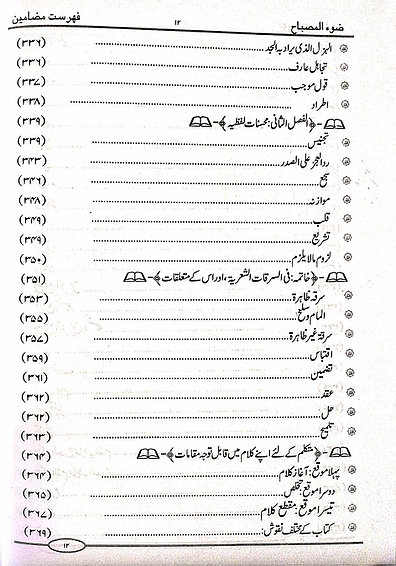 ضوء المصباح ۱۲ فہرست مضامین
الہزل الذی یراد بہ الجد (۳۳۶)
تجاہل عارف (۳۳۶)
قول موجب (۳۳۷)
اطراد (۳۳۸)
﴿الفصل الثانی: محسنات لفظیہ﴾ (۳۳۹)
تجنیس (۳۳۹)
رد العجز علی الصدر (۳۴۳)
سجع (۳۴۶)
موازنہ (۳۴۸)
قلب (۳۴۹)
تشریع (۳۴۹)
لزوم مالا یلزم (۳۵۰)
﴿خاتمہ: فی السرقات الشعریۃ، اور اس کے متعلقات﴾ (۳۵۱)
سرقہ ظاہرۃ (۳۵۳)
المام وسلخ (۳۵۵)
سرقۂ غیر ظاہرۃ (۳۵۷)
اقتباس (۳۵۹)
تضمین (۳۶۱)
عقد (۳۶۲)
حل (۳۶۲)
تلمیح (۳۶۳)
﴿متکلم کے لئے اپنے کلام میں قابل توجہ مقامات﴾ (۳۶۴)
پہلا موقع: آغاز کلام (۳۶۴)
دوسرا موقع: تخلص (۳۶۵)
تیسرا موقع: مقطع کلام (۳۶۷)
کتاب کے مختلف نقوش: (۳۶۹)
۱۲